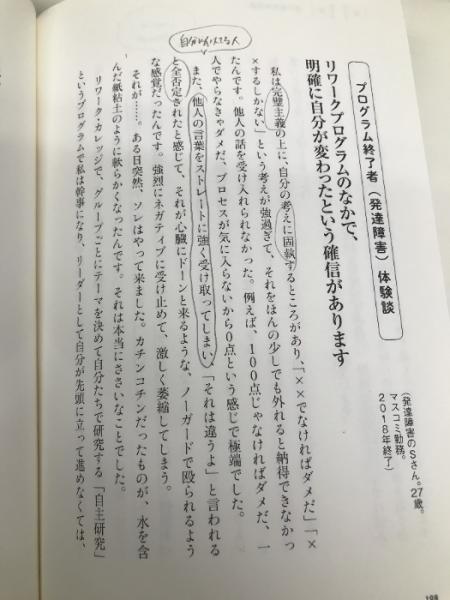 自分に似てる人
プログラム終了者（発達障害）体験談
（発達障害のSさん。27歳。
マスコミ勤務。
2018年終了）
リワークプログラムのなかで、
明確に自分が変わったという確信があります
私は完璧主義の上に、自分の考えに固執するところがあり、「××でなければダメだ」「×
×するしかない」という考えが強過ぎて、それをほんの少しでも外れると納得できなかっ
たんです。他人の話を受け入れられなかった。例えば、100点じゃなければダメだ、一
人でやらなきゃダメだ、プロセスが気に入らないから0点という感じで極端でした。
また、他人の言葉をストレートに強く受け取ってしまい、「それは違うよ」と言われる
と全否定されたと感じて、それが心臓にドーンと来るような、ノーガードで殴られるよう
な感覚だったんです。強烈にネガティブに受け止めて、激しく萎縮してしまう。
それが……。ある日突然、ソレはやって来ました。カチンコチンだったものが、水を含
んだ紙粘土のように軟らかくなったんです。それは本当にささいなことでした。
リワーク・カレッジで、グループごとにテーマを決めて自分たちで研究する「自主研究」
というプログラムで私は幹事になり、リーダーとして自分が先頭に立って進めなくては、